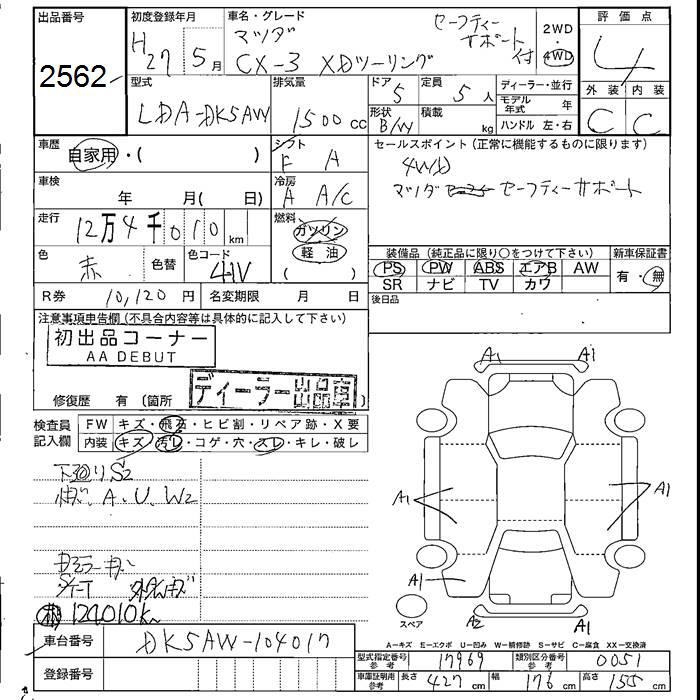 出品番号
2562
初度登録年月
H27 5月
車名・グレード
マツダ
CX-3 XDツーリング
セーフティー
サポート
付
2WD
・
4WD
評価点
4
外装 内装
C C
型式
LDA-DK5AW
排気量
1500 CC
ドア
5
形状
B/W
定員
5人
積載
kg
ディーラー・並行
モデル年式 年
ハンドル 左・右
車歴
自家用・( )
シフト
F A
車検
年 月( 日)
冷房
A A/C
走行
12万4千010 km
燃料
ガソリン
軽油
( )
色
赤
色替
色コード
41V
セールスポイント (正常に機能するものに限ります)
4WD
マツダ セーフティーサポート
装備品 (純正品に限り○をつけて下さい)
PS PW ABS エアB AW
SR ナビ TV カワ
新車保証書
有・無
後日品
R券 10,120 円
名変期限 月 日
注意事項申告欄 (不具合内容等は具体的に記入して下さい)
初出品コーナー
AA DEBUT
ディーラー出品車
修復歴 有 (箇所 )
検査員
記入欄
FW キズ・飛石・ヒビ割・リペア跡・X要
内装 キズ・汚レ・コゲ・穴・スレ・キレ・破レ
下廻りS2
キズ、A、U、W2
Dミラーキズ
シート
124,010K
A1 A1
A1 A1
A1
A2 A1
スペア
A=キズ E=エクボ U=凹み W=補修跡 S=サビ C=腐食 XX=交換済
車台番号
DK5AW-104017
登録番号
型式指定番号
参考
17969
類別区分番号
参考
0051
車庫証明用
参考
長さ 427 cm
幅 176 cm
高さ 155 cm